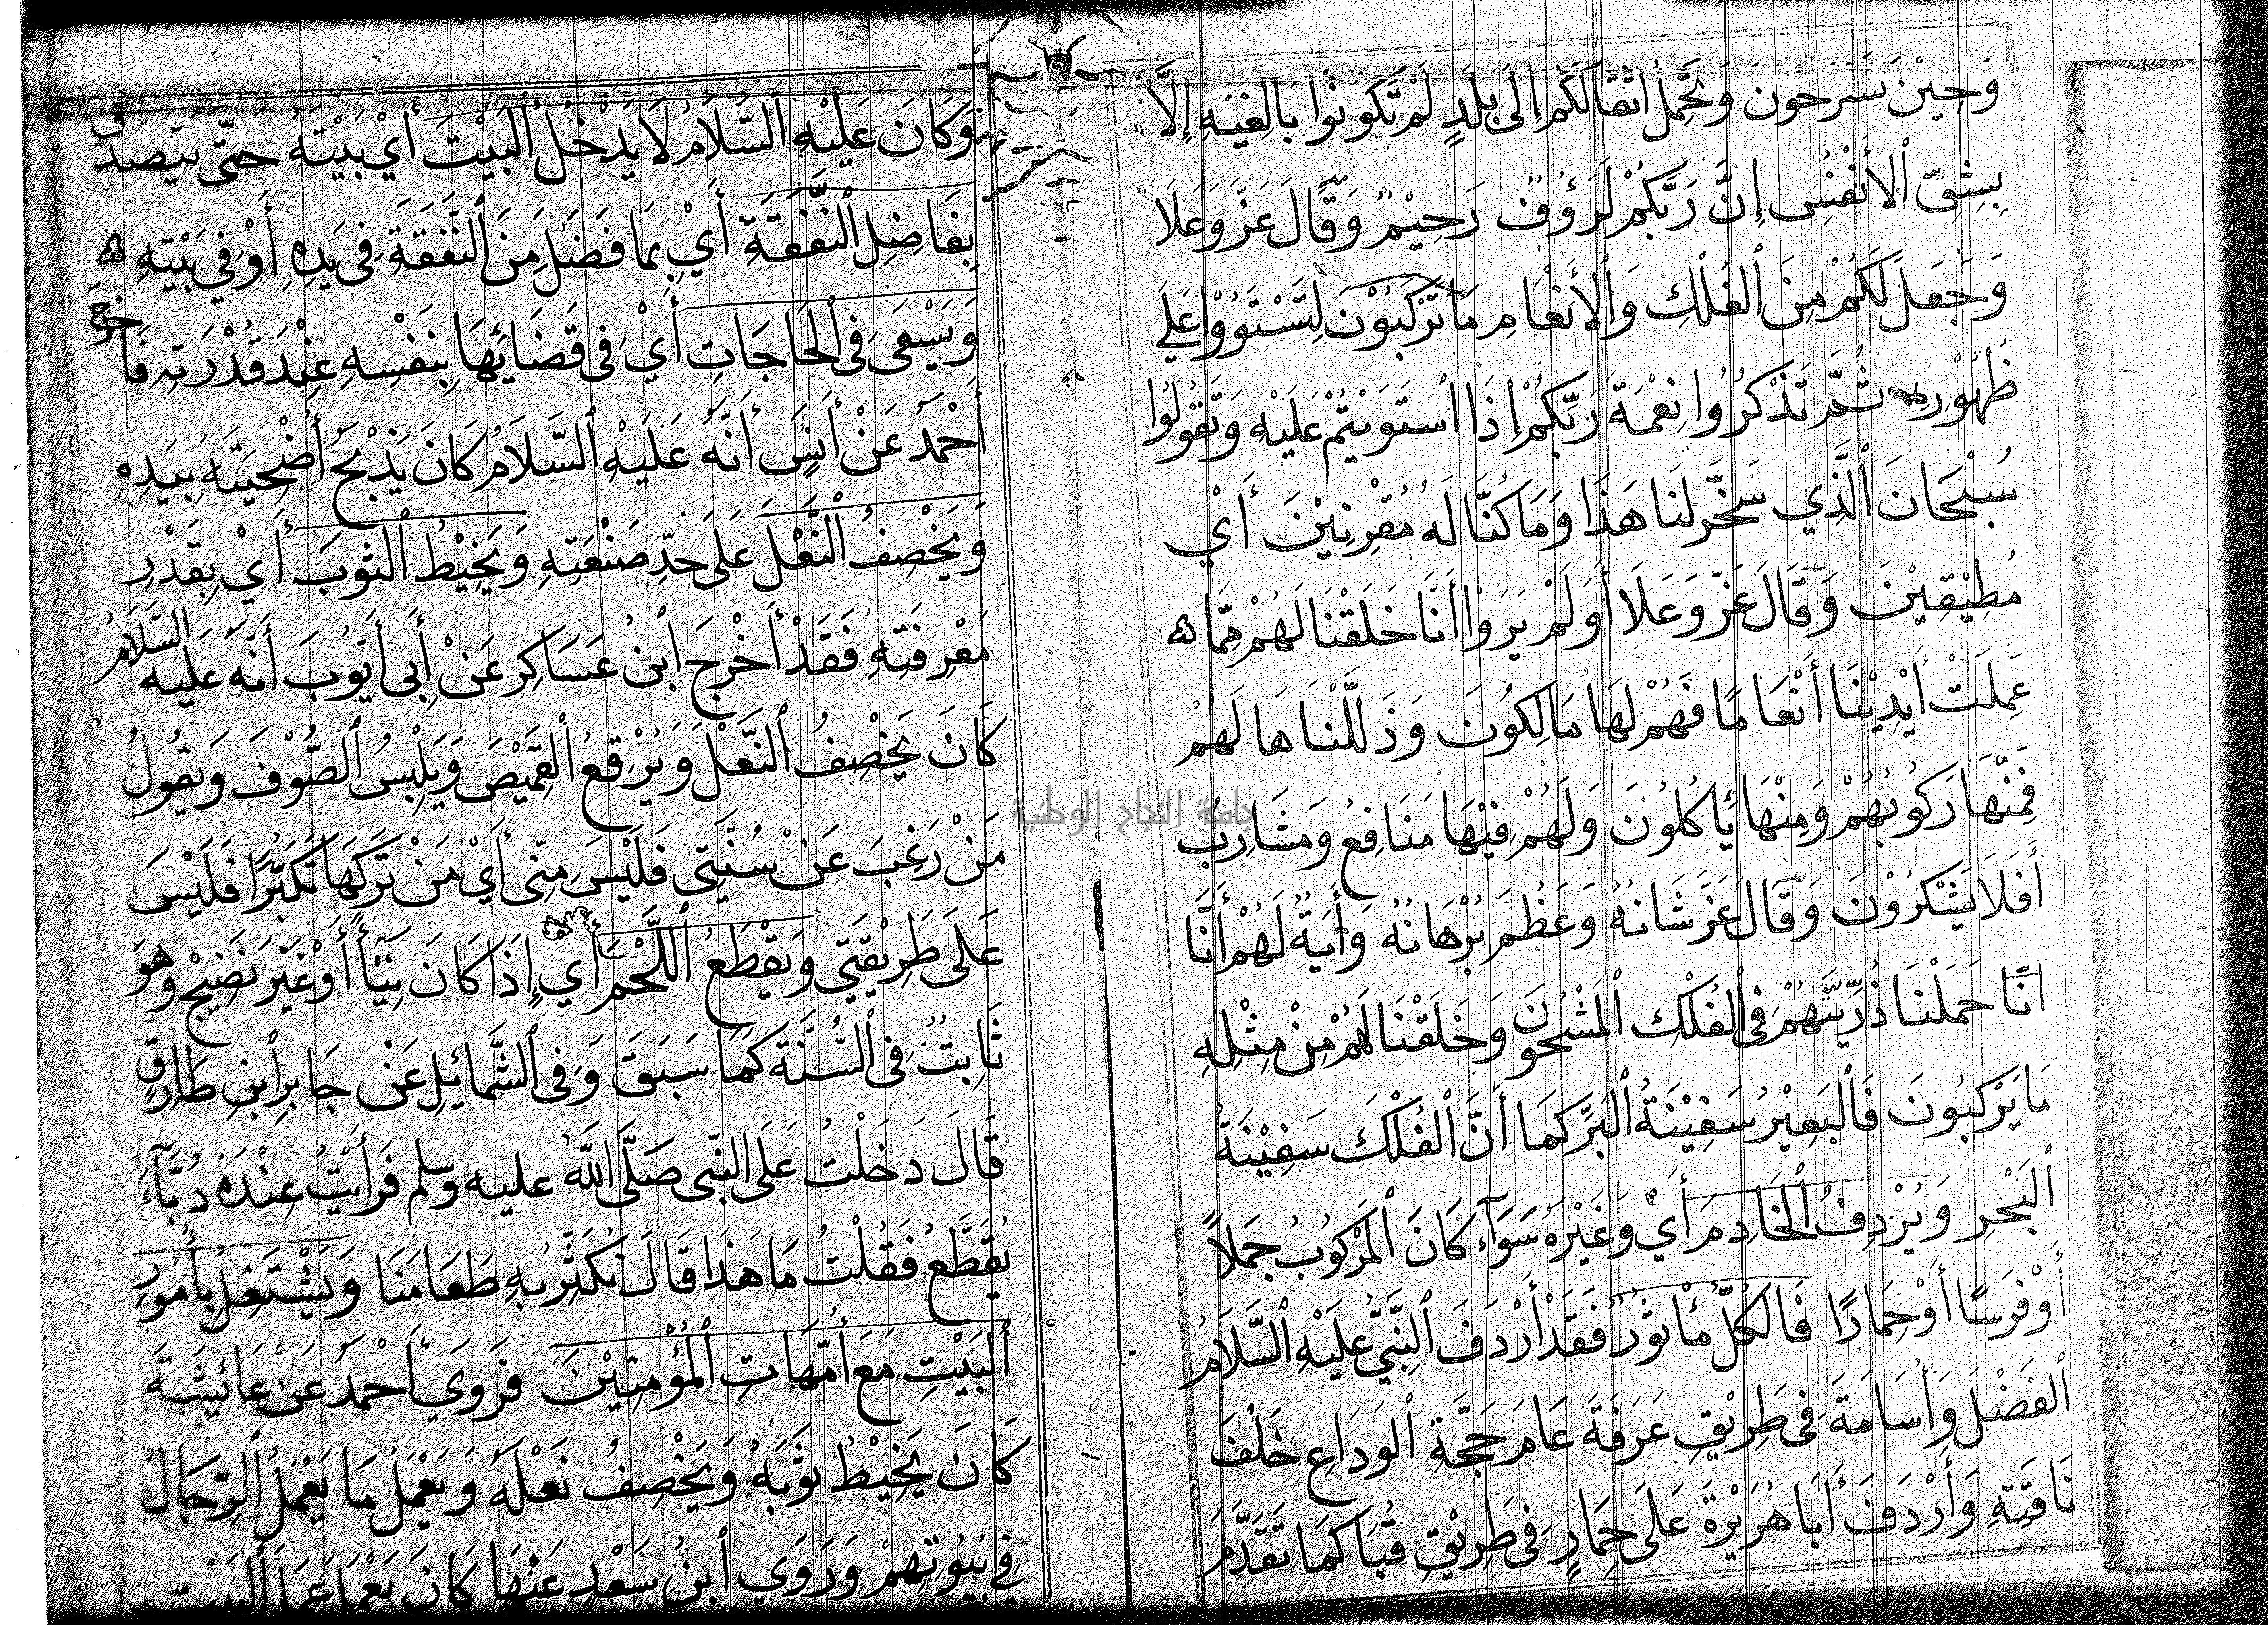 وَحِيْنَ تَسْرَحُونَ وَتَحْمِلُ أَثْقَالَكُمْ إِلَى بَلَدٍ لَمْ تَكُونُوا بَالِغِيْهِ إِلَّا
بِشِقِّ ٱلأَنْفُسِ إِنَّ رَبَّكُمْ لَرَؤُوْفٌ رَحِيْمٌ وَقَالَ عَزَّ وَعَلَا
وَجَعَلَ لَكُمْ مِنَ ٱلْفُلْكِ وَٱلْأَنْعَامِ مَا تَرْكَبُوْنَ لِتَسْتَوُوْا عَلَي
ظُهُوْرِهِ ثُمَّ تَذْكُرُوا نِعْمَةَ رَبِّكُمْ إِذَا ٱسْتَوَيْتُمْ عَلَيْهِ وَتَقُولُوا
سُبْحَانَ ٱلَّذِي سَخَّرَ لَنَا هَذَا وَمَا كُنَّا لَهُ مُقْرِنِيْنَ أَيْ
مُطِيْقِيْنَ وَقَالَ عَزَّ وَعَلَا أَوَلَمْ يَرَوْا أَنَّا خَلَقْنَا لَهُمْ مِمَّا
عَمِلَتْ أَيْدِيْنَا أَنْعَامًا فَهُمْ لَهَا مَالِكُونَ وَذَلَّلْنَاهَا لَهُمْ
فَمِنْهَا رَكُوبُهُمْ وَمِنْهَا يَأْكُلُونَ وَلَهُمْ فِيْهَا مَنَافِعُ وَمَشَارِبُ
أَفَلَا يَشْكُرُوْنَ وَقَالَ عَزَّ شَانُهُ وَعَظُمَ بُرْهَانُهُ وَأَيَةٌ لَهُمْ أَنَّا
انَّا حَمَلْنَا ذُرِّيَّتَهُمْ فِى ٱلْفُلْكِ ٱلْمَشْحُونِ وَخَلَقْنَا لَهُمْ مِنْ مِثْلِهِ
مَا يَرْكَبُونَ فَٱلْبَعِيْرُ سَفِيْنَةُ ٱلْبَرِّ كَمَا أَنَّ ٱلْفُلْكَ سَفِيْنَةُ
ٱلْبَحْرِ وَيُرْدِفُ ٱلْخَادِمَ أَيْ وَغَيْرَهُ سَوَآءٌ كَانَ ٱلْمَرْكُوبُ جَمَلًا
أَوْ فَرَسًا أَوْ حِمَارًا فَالكُلُّ مَأْثُوْرٌ فَقَدْ أَرْدَفَ ٱلنَّبِيُّ عَلَيْهِ ٱلسَّلَامُ
ٱلفَضْلَ وَأُسَامَةَ فِى طَرِيْقِ عَرَفَةَ عَامَ حَجَّةِ ٱلوَدَاعِ خَلْفَ
نَاقَتِهِ وَأَرْدَفَ أَبَا هُرَيْرَةَ عَلَى حِمَارٍ فِى طَرِيْقِ قُبَا كَمَا تَقَدَّمَ
وَكَانَ عَلَيْهِ ٱلسَّلَامُ لَا يَدْخُلُ ٱلبَيْتَ أَيْ بَيْتَهُ حَتَّى يَتَصَدَّقَ
بِفَاضِلِ ٱلنَّفَقَةِ أَيْ بِمَا فَضَلَ مِنَ ٱلنَّفَقَةِ فِى يَدِهِ أَوْ فِي بَيْتِهِ
وَيَسْعَى فِى ٱلْحَاجَاتِ أَيْ فِى قَضَائِهَا بِنَفْسِهِ عِنْدَ قُدْرَتِهِ فَاخرج
أَحْمَدُ عَنْ أَنَسٍ أَنَّهُ عَلَيْهِ ٱلسَّلَامُ كَانَ يَذْبَحُ أُضْحِيَتَهُ بِيَدِهِ
وَيَخْصِفُ ٱلنَّعْلَ عَلَى حَدِّ صَنْعَتِهِ وَيَخِيْطُ ٱلثَوبَ أَيْ بِقَدْرِ
مَعْرِفَتِهِ فَقَدْ أَخْرَجَ ٱبْنُ عَسَاكِرَ عَنْ أَبِى أَيُّوبَ أَنَّهُ عَلَيه السَّلَامُ
كَانَ يَخْصِفُ ٱلنَّعْلَ وَيُرْقِعُ ٱلقَمِيْصَ وَيَلْبِسُ ٱلصُّوْفَ وَيَقُولُ
مَنْ رَغِبَ عَنْ سُنَّتِي فَلَيْسَ مِنِّى أَيْ مَنْ تَرَكَهَا تَكَبُّرًا فَلَيْسَ
عَلَى طَرِيْقَتِي وَيَقْطَعُ ٱللَّحْمَ أَي إِذَا كَانَ نِيْأً أَوْ غَيْرَ نَضِيْجٍ وهو
ثَابِتٌ فِى ٱلسُّنَّةِ كَمَا سَبَقَ وَفِى ٱلشَّمَائِلِ عَنْ جَابِرِ ٱبْنِ طَارِقٍ
قَالَ دَخَلْتُ عَلَى النَّبِى صَلَّى ٱللَّهُ عليه وسلم فَرَأَيْتُ عِنْدَهُ دُبَّآءَ
يُقَطَّعُ فَقُلْتُ مَا هَذَا قَالَ نُكَثِّرُ بِهِ طَعَامَنَا وَيَشْتَغِلُ بِأُمُورِ
ٱلبَيْتِ مَعَ أُمَّهَاتِ ٱلْمُؤْمِنِيْنَ فَرَوَيَ أَحْمَدُ عَنْ عَائِشَةَ
كَانَ يَخِيْطُ ثَوْبَهُ وَيَخْصِفُ نَعْلَهُ وَيَعْمَلُ مَا يَعْمَلُ ٱلرِّجَالُ
فِي بُيُوتِهِمْ وَرَوَي ٱبْنُ سَعْدٍ عَنْهَا كَانَ يَعْمَلُ عَمَلَ ٱلبَيْتِ
جامعة النجاح الوطنية